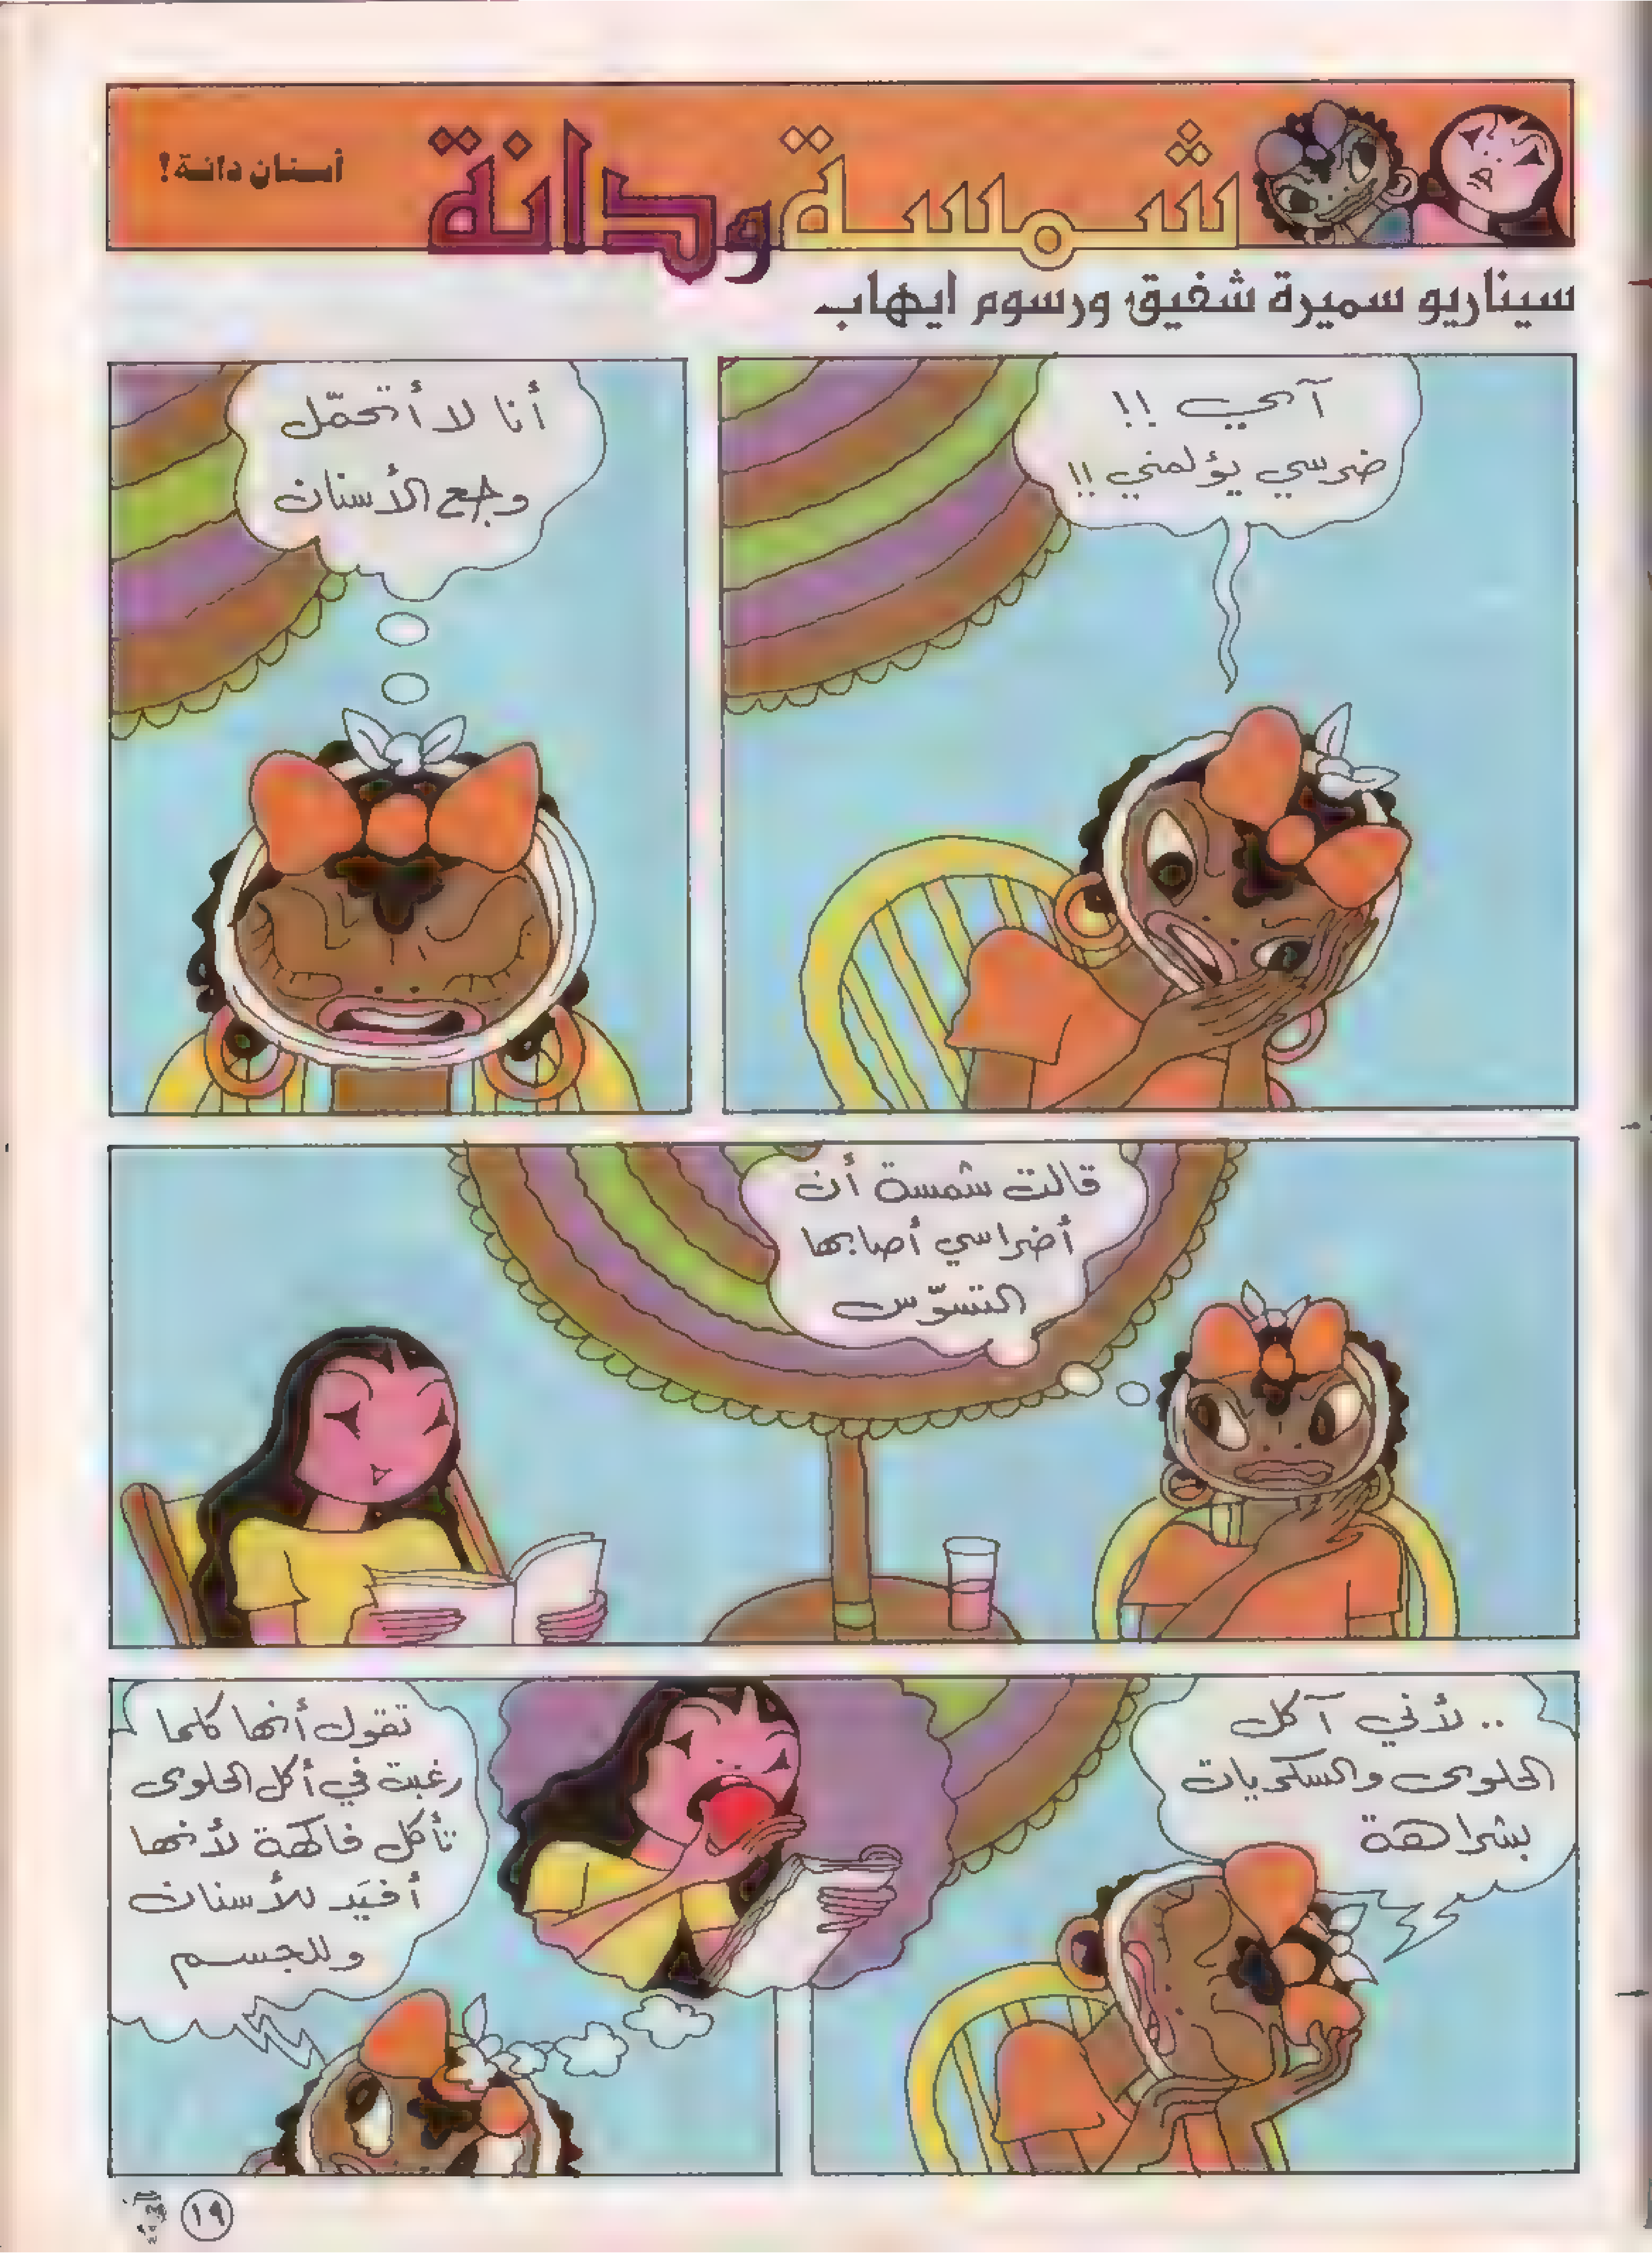 شمسة ودانة
أسنان دانة!
سيناريو سميرة شفيق ورسوم ايهاب
آحي !!
ضرسي يؤلمني !!
أنا لا أتحمّل
وجع الأسنان
قالت شمسة أن
أضراسي أصابها
التسوّس
.. لأني آكل
الحلوى والسكريات
بشراهة
تقول أنها كلما
رغبت في أكل الحلوى
تأكل فاكهة لأنها
أفيَد للأسنان
وللجسم
١٩